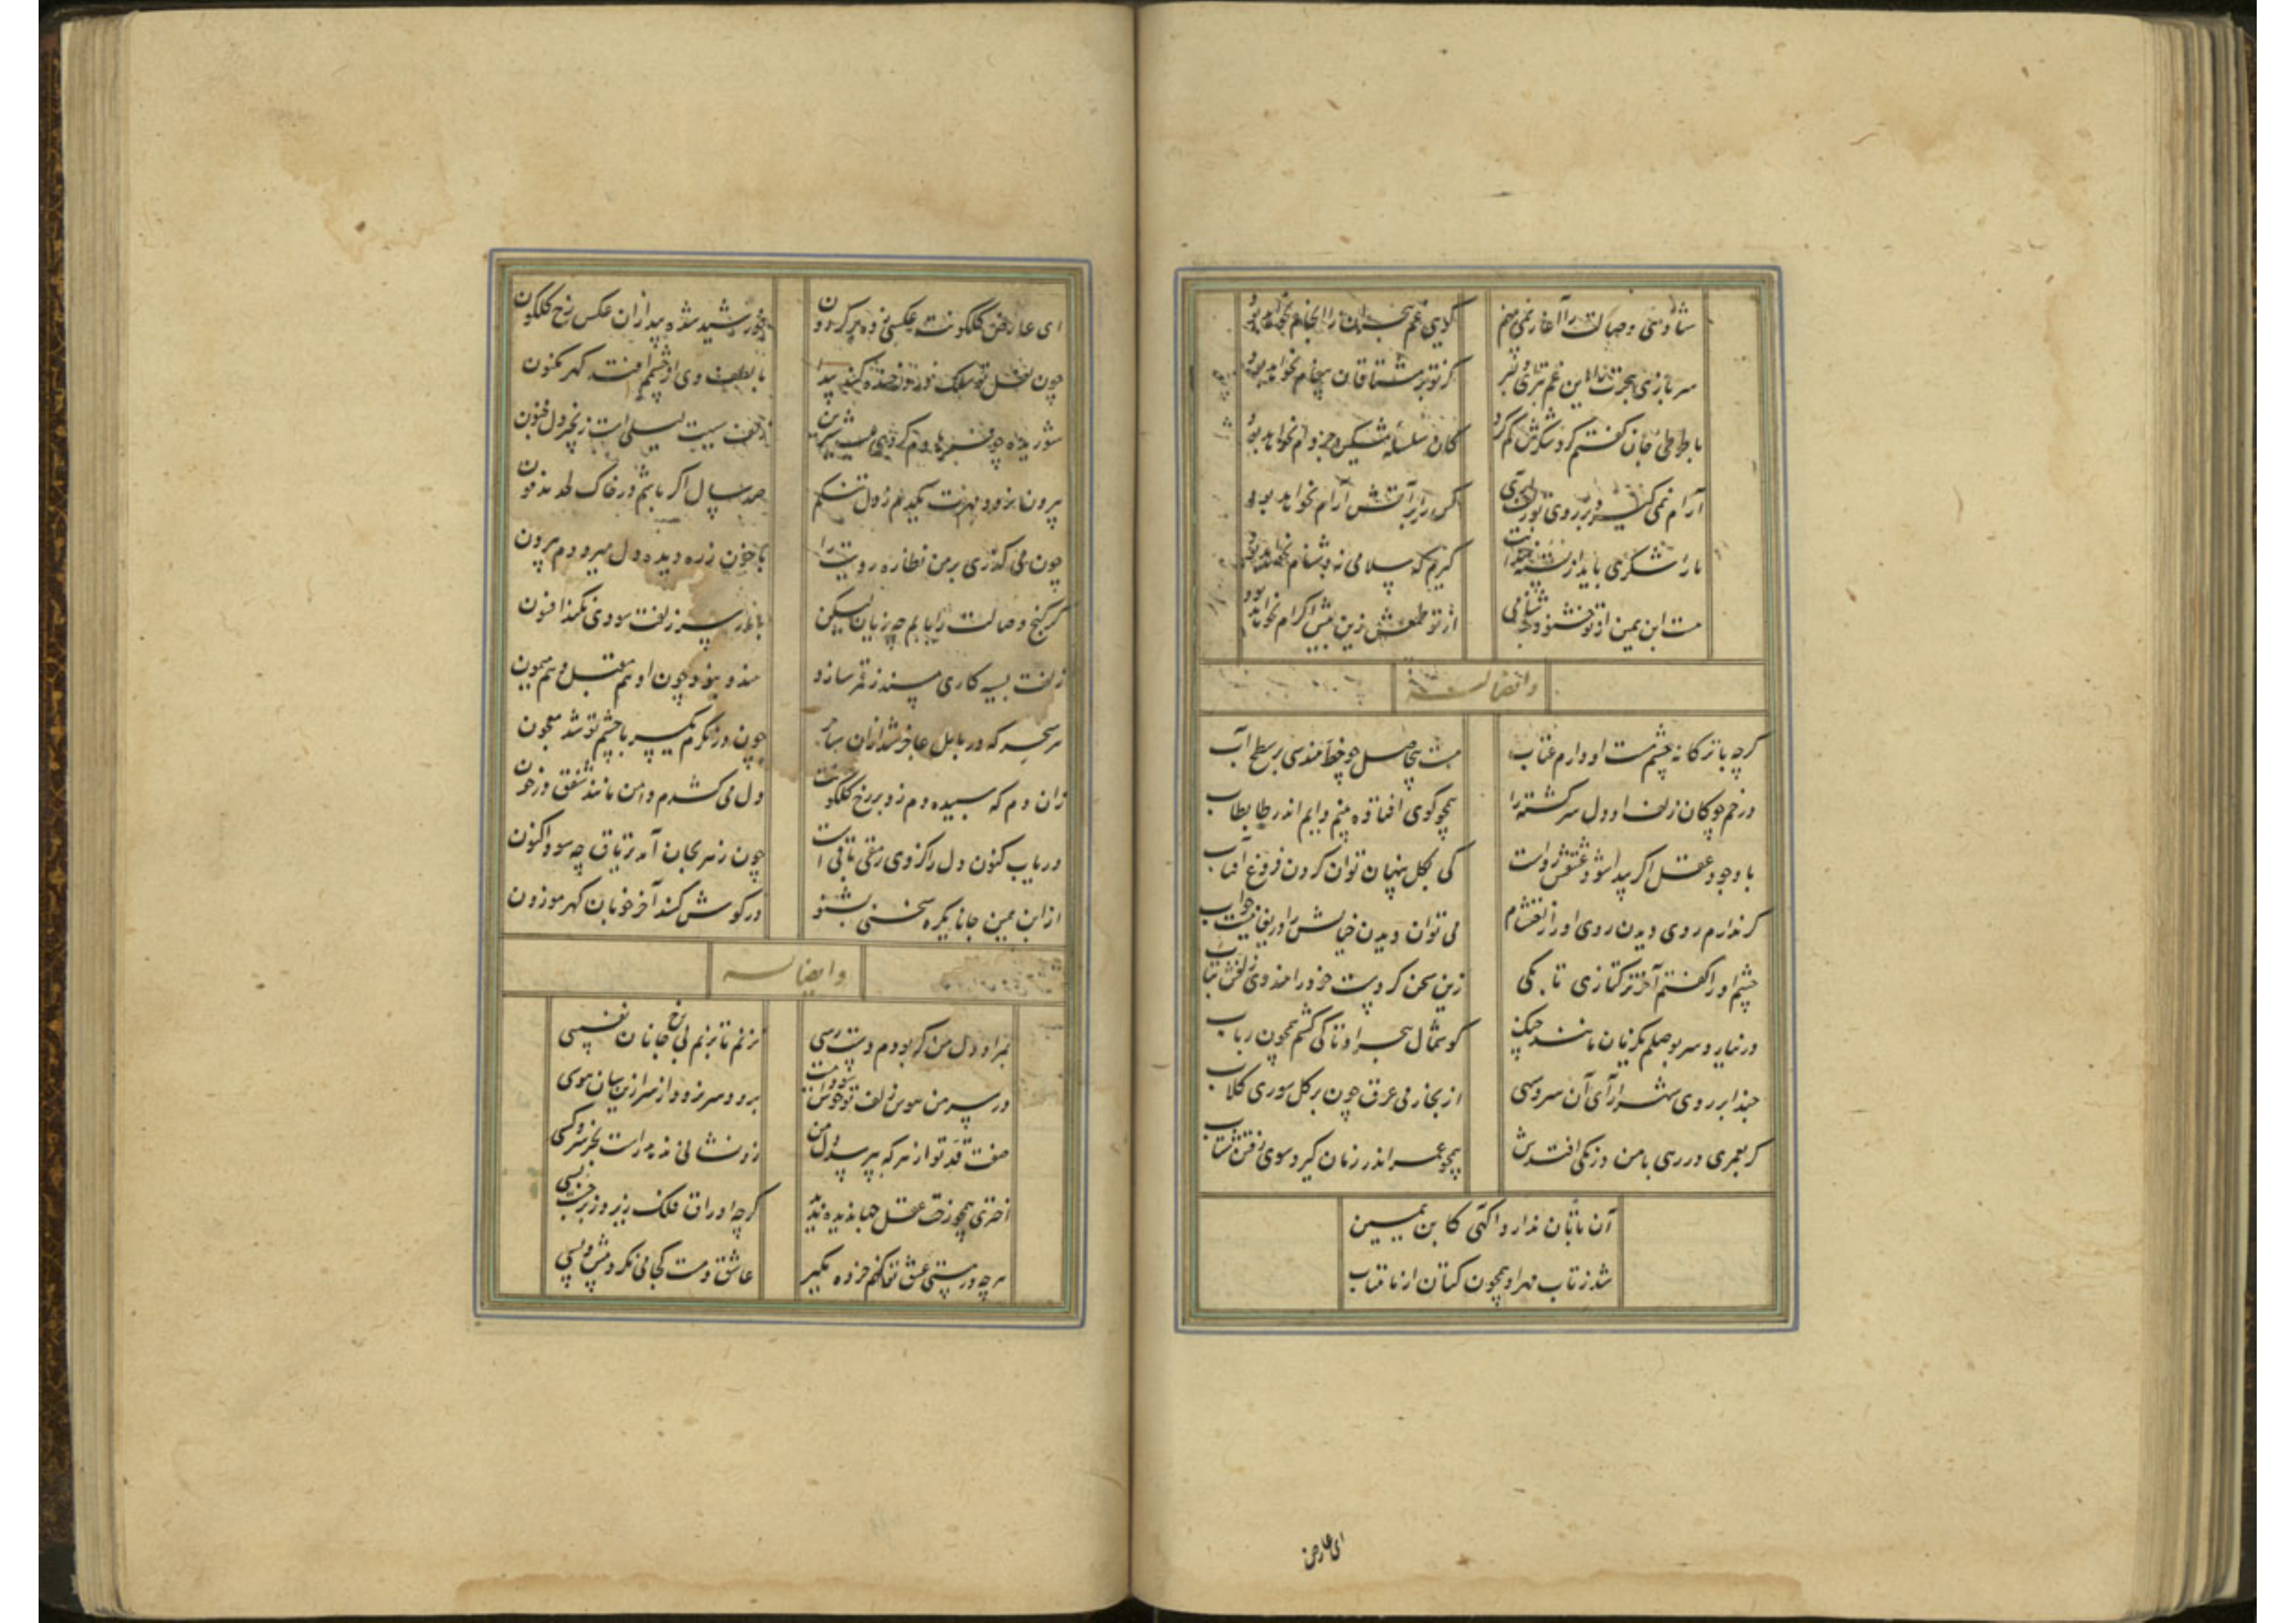 شادی وصالت را آغاز نمی بینم کاین غم هجران را انجام نخواهد بود
گر تو بر مشتاقان پیغام نخواهد بود
با طوطی جان گفتم گرد شکرش کم گرد کان سلسله مشکین جز دام نخواهد بود
آرام نمی گیرد بر روی تو زلف آری گر زیر آتش آرام نخواهد بود
ما را شکری باید از پسته خندانت گیرم که سلامی نه دشنام نخواهد بود
هست ابن یمین از تو خشنود بدشنامی از تو طمعش زین بیش اکرام نخواهد بود
وایضا له
گرچه با ترکانه چشم مست او دارم عتاب هست بیحاصل چو خط هندسی بر سطح آب
در خم چوکان زلف او دل سرکشته را همچو کوی افتاده بینم دایم اندر طابطاب
با وجود عقل اگر پیدا شود عشقش رواست کی بکل پنهان توان کردن فروغ آفتاب
گر ندارم روی دیدن روی او را می توان دیدن خیالش را دریغا نیست خواب
چشم او را گفتم آخر ترکتازی تا بکی زین سخن کردست خود را هندوی زلفش بتاب
در نیارد سر بوصلم یک زمان مانند چنک گوشمال هجر او تا کی کشم همچون رباب
حبذا بر روی شهرآرای آن سرو سهی از بخار می عرق چون بر کل سوری کلاب
گر بعمری در رهی با من دزنکی افتدش همچو عمر اندر زمان گیرد سوی رفتن شتاب
آن ماه تابان ندارد آگهی کابن یمین
شد ز تاب مهر او همچون کتان از ماهتاب
ای عارض
ای عارض کلکونت عکسی زده بر کردون خورشید شده پیدا زان عکس رخ کلکون
چون لعل تو سلک در خنده کند پیدا با لطف وی از چشمم افتد گهر مکنون
شوریده چو فرهادم شیرین زلفت لیلی است زنجیر دل مجنون
بیرون نبرد مهرت یکدم ز دل تنکم صد سال اگر باشم در خاک لحد مدفون
چون می گذری بر من نظاره رویت را با خون ز ره دیده دل میرودم بیرون
گر گنج وصالت را یابم چه زیان لیکن با مار سر زلفت سودی نکند افسون
زلفت بسیه کاری مسند ز قمر سازد هندو نبود چون او هم مقبل و هم میمون
هر سحر که در بابل عاجز شد ازان ساحر چون درنکرم یکسر با چشم تو شد معجون
زان دم که سپیده دم زد بر رخ کلکونت دل می کشدم دامن مانند شفق در خون
دریاب کنون دل را کز وی رمقی باقیست چون زهر بجان آمد تریاق چه سود اکنون
از ابن یمین جانا یکره سخنی بشنو در گوش کند آخر خوبان گهر موزون
وایضا له
بمراد دل من گر بودم دست رسی نزنم تا بزیم بی رخ جانان نفسی
در سر من هوس زلف تو سودست برود سر نرود از سر ازین سان هوسی
صفت قد تو از هر که بپرسد دل من زو نشانی ندهد راست بجز سرو کسی
اختری همچو رخت عقل جهاندیده ندید گرچه اوراق فلک زیر و زبر جست بسی
هر چه در مستی عشق تو کنم خرده مگیر عاشق و مست کجا می نگرد پیش و پسی